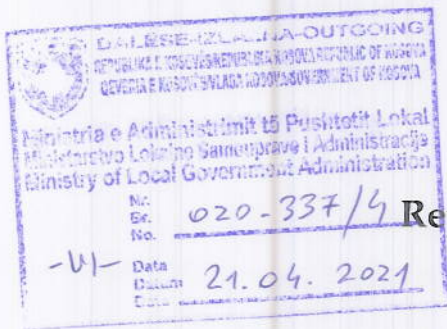 DALËSE-IZLAZNA-OUTGOING
REPUBLIKA E KOSOVËS/REPUBLIKA KOSOVA/REPUBLIC OF KOSOVA
QEVERIA E KOSOVËS/VLADA KOSOVA/GOVERNMENT OF KOSOVA
Ministria e Administrimit të Pushtetit Lokal
Ministarstvo Lokalne Samouprave i Administracije
Ministry of Local Government Administration
Nr.
Br. 020-337/4 Re
No.
Data
Datum 21.04.2021